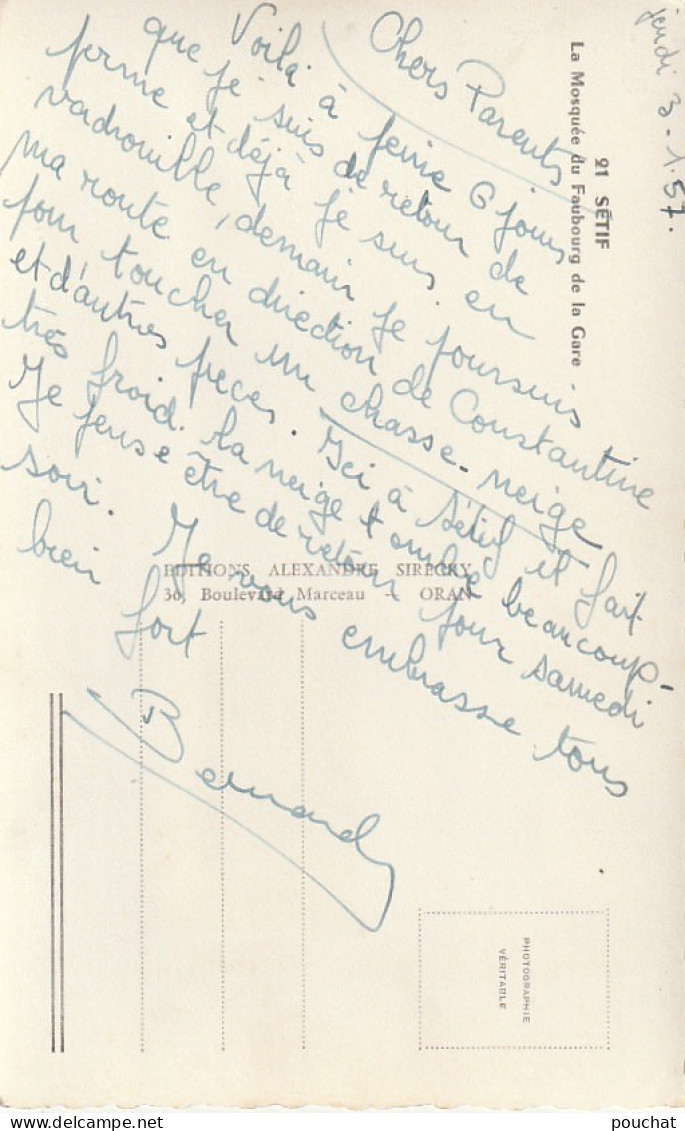 jeudi 3-1.57.
21 SÉTIF
La Mosquée du Faubourg de la Gare
Chers Parents
Voilà à peine 6 jours
que je suis de retour de
perme et déjà je suis en
vadrouille, demain je poursuis
ma route en direction de Constantine
pour toucher un chasse-neige
et d'autres pièces. Ici à Sétif il fait
très froid. La neige tombe beaucoup.
Je pense être de retour pour samedi
soir. Je vous embrasse tous
bien fort
Bernard
EDITIONS ALEXANDRE SIRECKY
30, Boulevard Marceau - ORAN
PHOTOGRAPHIE
VÉRITABLE
pouchat